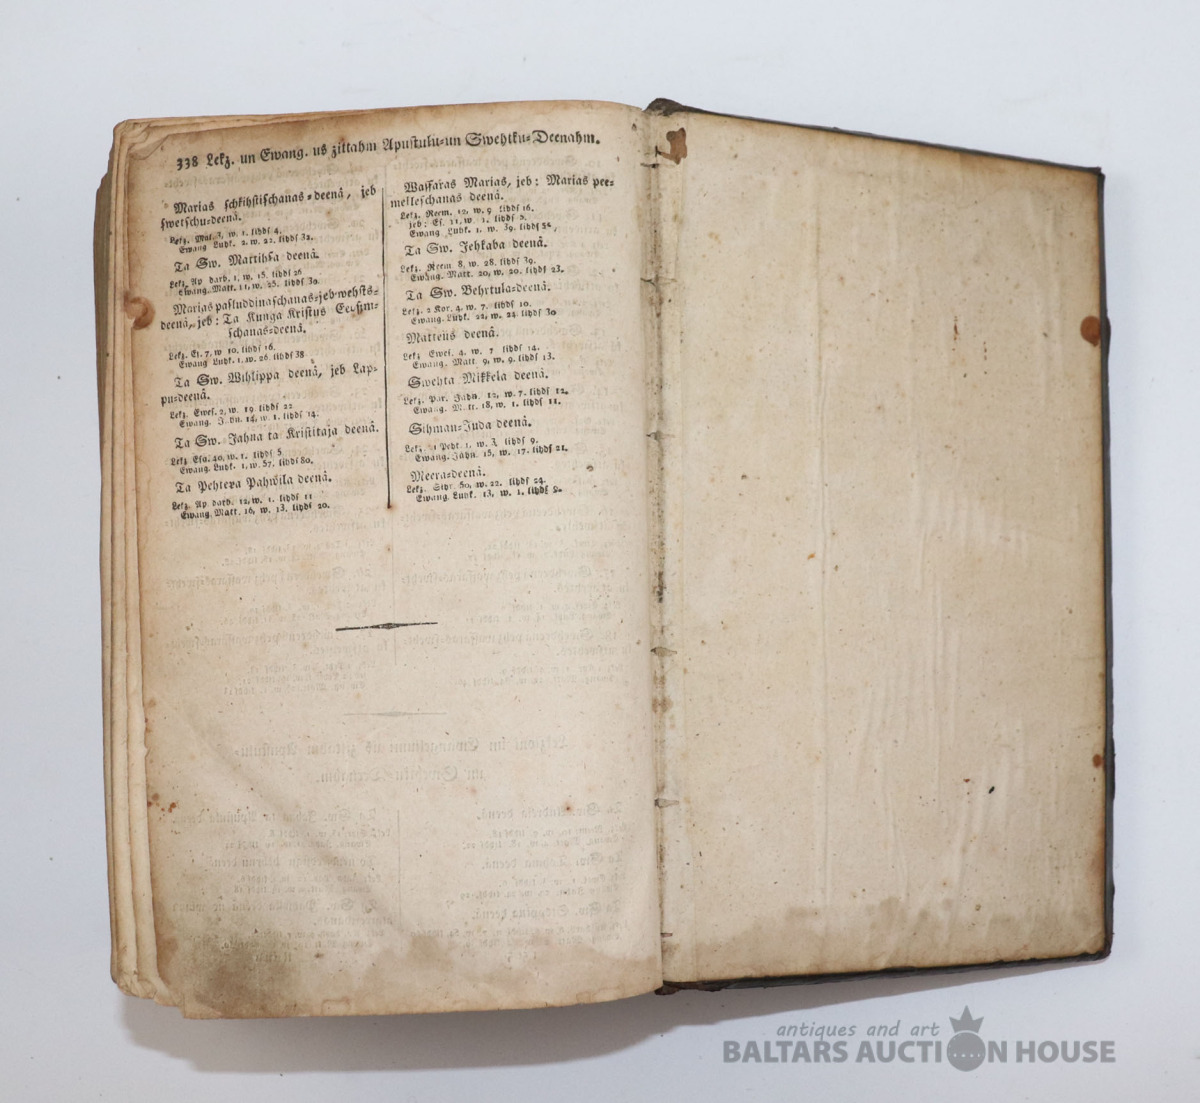 338 Lekz. un Ewang. us zittahm Apustulu-un Swehtku-Deenahm.
Marias schkihstischanas-deenâ, jeb
swetschu-deenâ.
Lekz. Mal. 3, w. 1. lihds 4.
Ewang Luhk. 2. w. 22. lihds 32.
Ta Sw. Mattihsa deenâ.
Lekz. Ap darb. 1, w. 15. lihds 26
Ewang. Matt. 11, w. 25. lihds 30.
Marias pasluddinaschanas-jeb wehsts-
deenâ, jeb: Ta Kunga Kristus Eeksim-
schanas-deenâ.
Lekz. Es. 7, w 10. lihds 16.
Ewang Luhk. 1, w. 26. lihds 38
Ta Sw. Wihlippa deenâ, jeb Lap-
pu-deenâ.
Lekz. Ewes. 2, w. 19. lihds 22
Ewang. Jahn. 14, w. 1. lihds 14.
Ta Sw. Jahna ta Kristitaja deenâ.
Lekz Esa. 40, w. 1. lihds 5
Ewang. Luhk. 1, w. 57, lihds 80.
Ta Pehtera Pahwila deenâ.
Lekz. Ap darb. 12, w. 1. lihds 11
Ewang. Matt. 16, w. 13. lihds 20.
Wassaras Marias, jeb: Marias pee-
melleschanas deenâ.
Lekz. Reem. 12, w. 9 lihds 16.
jeb: Es. 11, w. 1. lihds 5.
Ewang. Luhk. 1. w. 39. lihds 56,
Ta Sw. Jehkaba deenâ.
Lekz. Reem 8, w. 28. lihds 39.
Ewang. Matt. 20, w. 20. lihds 23.
Ta Sw. Behrtula-deenâ.
Lekz. 2 Kor. 4, w. 7. lihds 10.
Ewang. Luhk. 22, w. 24. lihds 30
Matteus deenâ.
Lekz Ewes. 4. w. 7 lihds 14.
Ewang. Matt. 9, w. 9. lihds 13.
Swehta Mikkela deenâ.
Lekz. Par. Jahn. 12, w. 7. lihds 12.
Ewang. Matt. 18, w. 1. lihds 11.
Sihman-Juda deenâ.
Lekz. 1 Peht. 1, w. 3, lihds 9.
Ewang. Jahn. 15, w. 17. lihds 21.
Meera-deenâ.
Lekz. Sihr. 50, w. 22. lihds 24.
Ewang. Luhk. 13, w. 1. lihds 9.
antiques and art
BALTARS AUCTION HOUSE